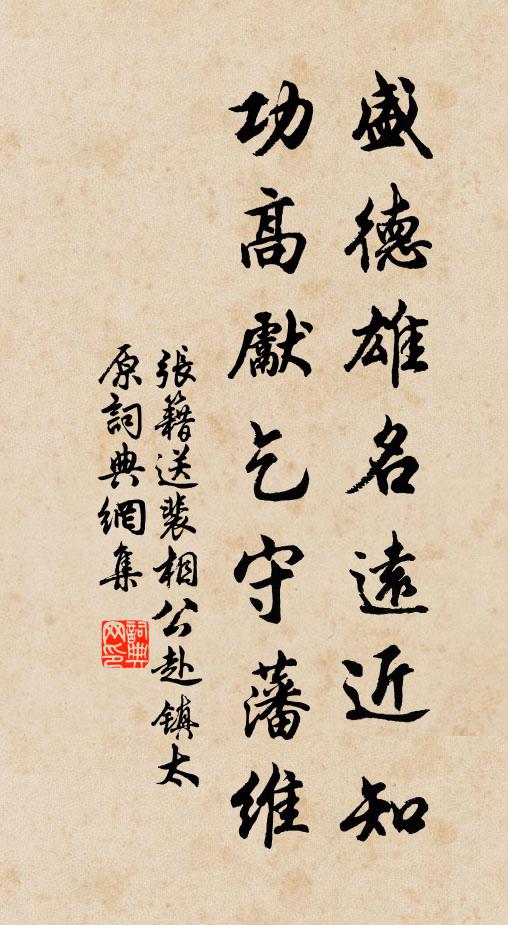 盛德雄名遠近知
功高獻乞守藩維
張籍送裴相公赴鎮太
原詞典網集
詞典
网印